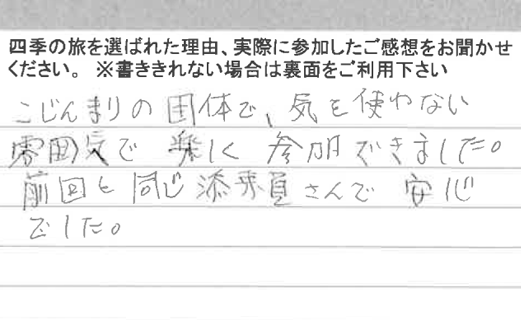 四季の旅を選ばれた理由、実際に参加したご感想をお聞かせ
ください。 ※書ききれない場合は裏面をご利用下さい
こじんまりの団体で、気を使わない
雰囲気で 楽しく 参加できました。
前回と同じ添乗員さんで 安心
でした。